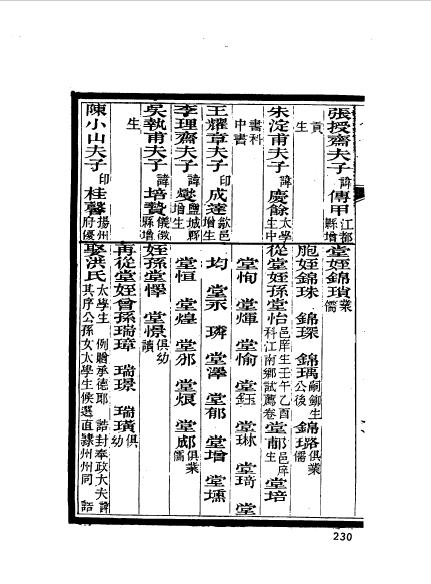 張授齋夫子 諱傳甲 江都縣增
貢生
朱淀甫夫子 諱慶餘 太學生中
書科中書
王耀章夫子 印成蓬 歙邑增生
李理齋夫子 諱燮 鹽城縣增生
吳執甫夫子 諱培贊 儀徵縣增
生
陳小山夫子 印桂馨 揚州府優
堂姪錦瑣 業儒
胞姪錦珠 錦琛 錦瑀 嗣鉚生公後 錦璐 俱業儒
從堂姪孫堂怡 邑庠生壬午乙酉科江南鄉試薦卷 堂郙 邑庠生 堂培
堂恂 堂煇 堂愉 堂鈺 堂琳 堂琦 堂
均 堂永 堂璘 堂澤 堂郁 堂增 堂壎
堂恒 堂煌 堂邠 堂烺 堂郕 俱業儒
姪孫堂懌 堂憬 俱幼讀
再從堂姪曾孫瑞璋 瑞璟 瑞璜 俱幼
娶洪氏 太學生 例贈承德郎 誥封奉政大夫諱其序公孫女太學生候選直隸州州同 誥
230